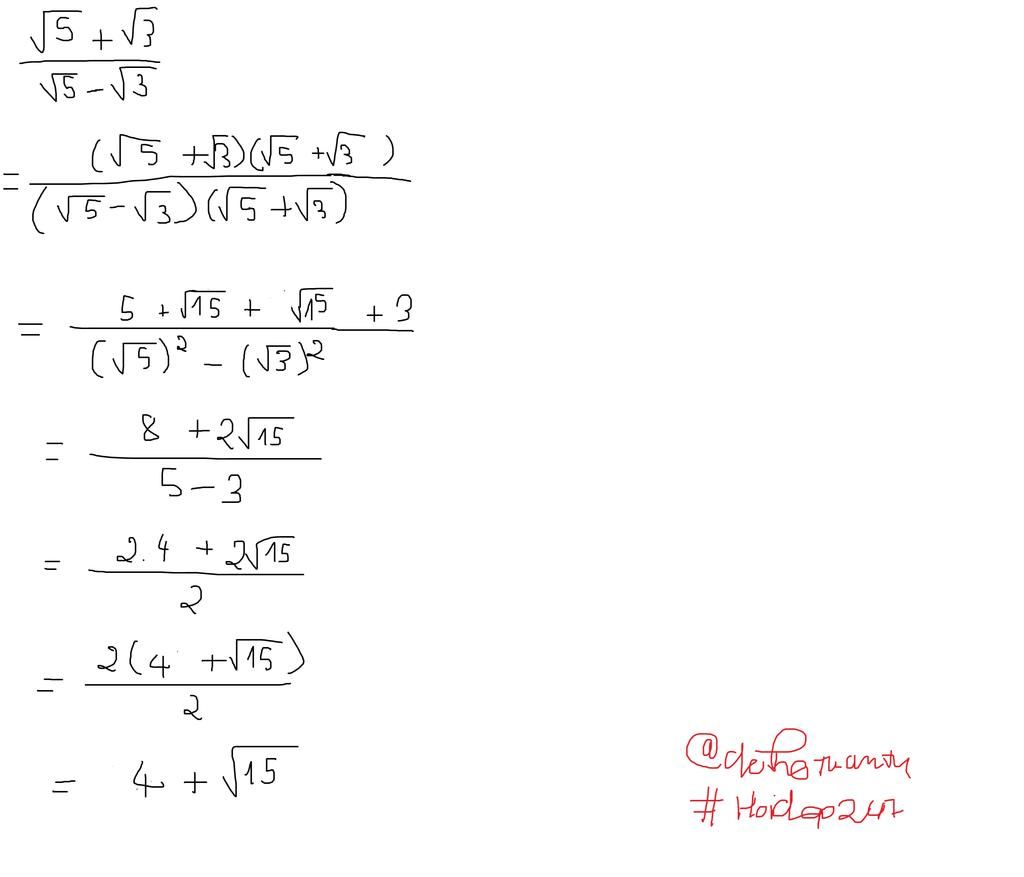 √5 + √3
√5 - √3
= (√5 + √3)(√5 + √3)
(√5 - √3)(√5 + √3)
= 5 + √15 + √15 + 3
(√5)² - (√3)²
= 8 + 2√15
5 - 3
= 2.4 + 2√15
2
= 2(4 + √15)
2
= 4 + √15
#Hoidap247